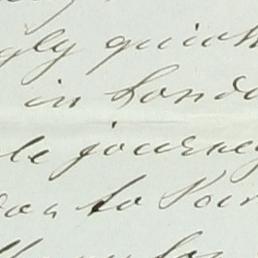 gly quick
in Londo
le journey
on to Par